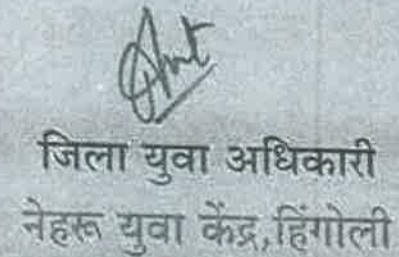 जिला युवा अधिकारी
नेहरू युवा केंद्र,हिंगोली